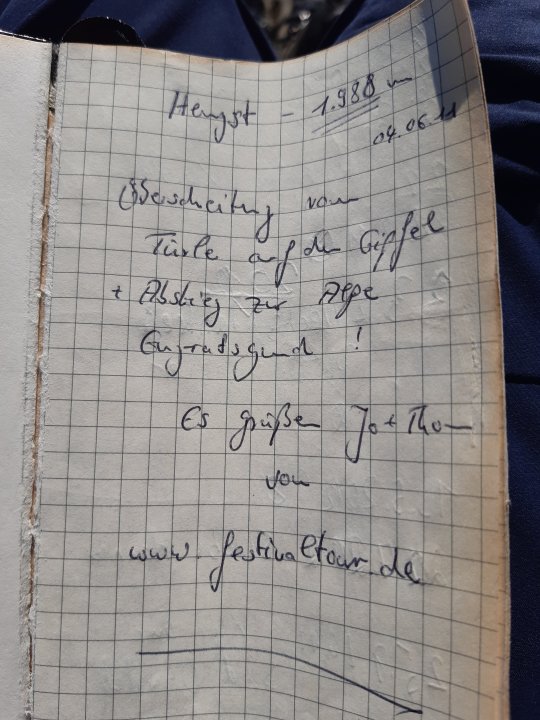 Hengst - 1.988 m
04.06.11
Überschreitung vom
Türle auf den Gipfel
+ Abstieg zur Alpe
Engratsgund !
Es grüßen Jo + Thom
von
www.festivaltour.de